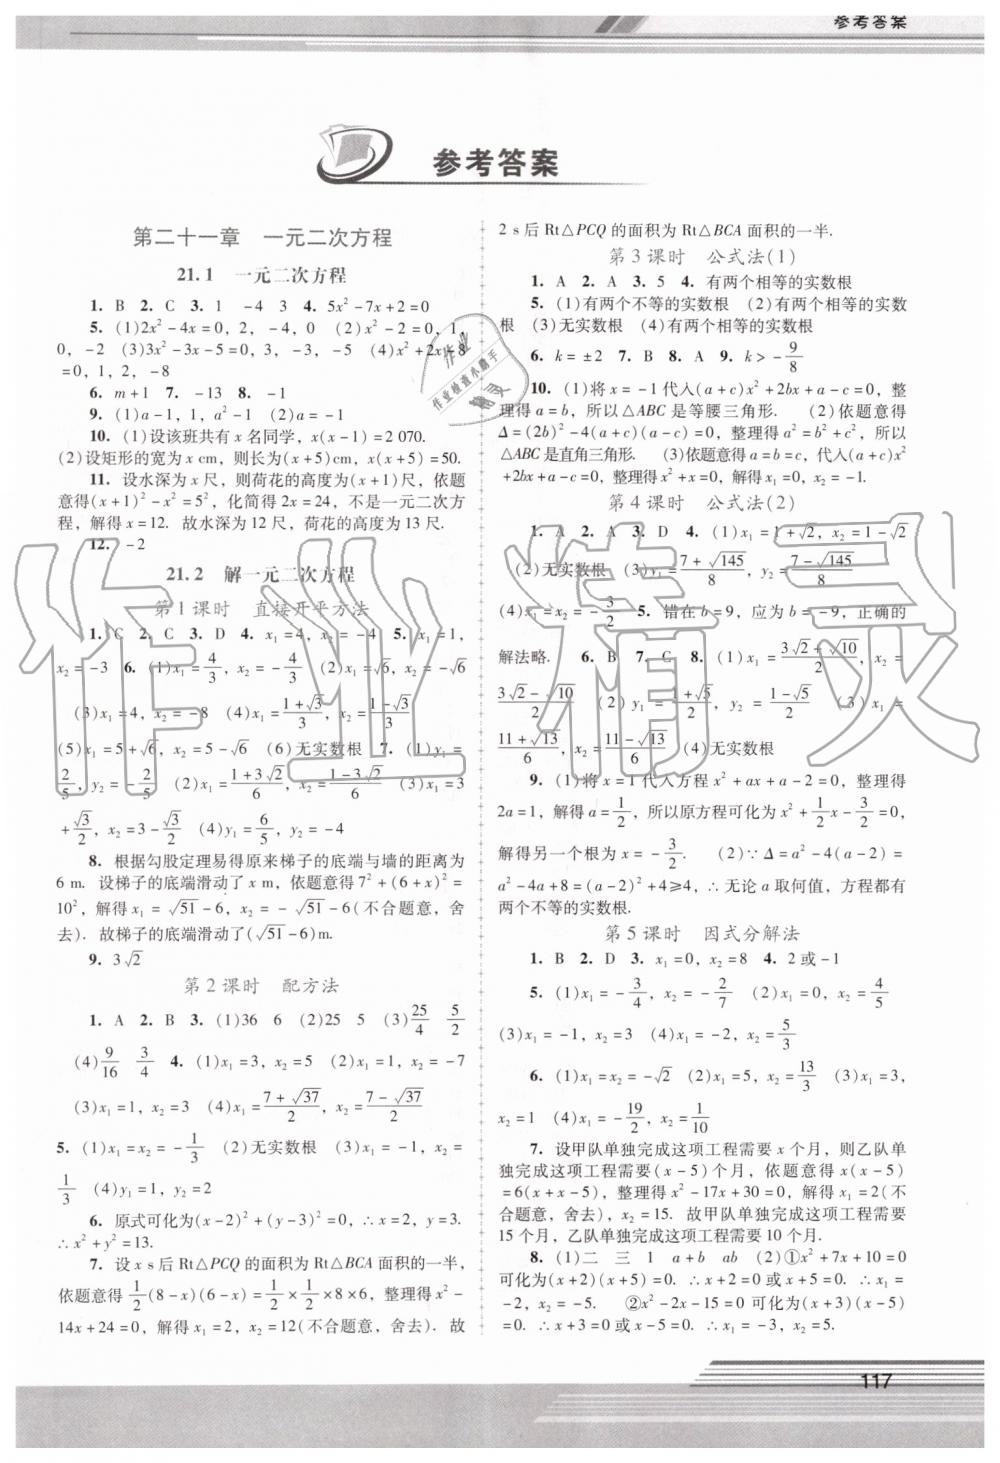 参考答案
参考答案
第二十一章　一元二次方程
21.1　一元二次方程
1. B 2. C 3. 1 －4 3 4. 5x²－7x＋2＝0
5. (1)2x²－4x＝0，2，－4，0 (2)x²－2＝0，1，
0，－2 (3)3x²－3x－5＝0，3，－3，－5 (4)x²＋2x－8
＝0，1，2，－8
6. m＋1 7. －13 8. －1
9. (1)a－1，1，a²－1 (2)a＝－1
10. (1)设该班共有 x 名同学，x(x－1)＝2 070.
(2)设矩形的宽为 x cm，则长为(x＋5)cm，x(x＋5)＝50.
11. 设水深为 x 尺，则荷花的高度为(x＋1)尺，依题
意得(x＋1)²－x²＝5²，化简得 2x＝24，不是一元二次方
程，解得 x＝12. 故水深为 12 尺，荷花的高度为 13 尺.
12. －2
21.2　解一元二次方程
第 1 课时　直接开平方法
1. C 2. C 3. D 4. x₁＝4，x₂＝－4 5. x₁＝1，
x₂＝－3 6. (1)x₁＝4/3，x₂＝－4/3 (2)x₁＝√6，x₂＝－√6
(3)x₁＝4，x₂＝－8 (4)x₁＝(1＋√3)/3，x₂＝(1－√3)/3
(5)x₁＝5＋√6，x₂＝5－√6 (6)无实数根 7. (1)y₁＝
2/5，y₂＝－2/5 (2)x₁＝(1＋3√2)/6，x₂＝(1－3√2)/6 (3)x₁＝3
＋√3/2，x₂＝3－√3/2 (4)y₁＝6/5，y₂＝－4
8. 根据勾股定理易得原来梯子的底端与墙的距离为
6 m. 设梯子的底端滑动了 x m，依题意得 7²＋(6＋x)²＝
10²，解得 x₁＝√51－6，x₂＝－√51－6(不合题意，舍
去). 故梯子的底端滑动了(√51－6)m.
9. 3√2
第 2 课时　配方法
1. A 2. B 3. (1)36 6 (2)25 5 (3)25/4 5/2
(4)9/16 3/4 4. (1)x₁＝3，x₂＝5 (2)x₁＝1，x₂＝－7
(3)x₁＝1，x₂＝3 (4)x₁＝(7＋√37)/2，x₂＝(7－√37)/2
5. (1)x₁＝x₂＝－1/3 (2)无实数根 (3)x₁＝－1，x₂＝
1/3 (4)y₁＝1，y₂＝2
6. 原式可化为(x－2)²＋(y－3)²＝0，∴x＝2，y＝3.
∴x²＋y²＝13.
7. 设 x s 后 Rt△PCQ 的面积为 Rt△BCA 面积的一半，
依题意得 1/2(8－x)(6－x)＝1/2×1/2×8×6，整理得 x²－
14x＋24＝0，解得 x₁＝2，x₂＝12(不合题意，舍去). 故
2 s 后 Rt△PCQ 的面积为 Rt△BCA 面积的一半.
第 3 课时　公式法(1)
1. A 2. A 3. 5 4. 有两个相等的实数根
5. (1)有两个不等的实数根 (2)有两个相等的实数
根 (3)无实数根 (4)有两个相等的实数根
6. k＝±2 7. B 8. A 9. k＞－9/8
10. (1)将 x＝－1 代入(a＋c)x²＋2bx＋a－c＝0，整
理得 a＝b，所以△ABC 是等腰三角形. (2)依题意得
Δ＝(2b)²－4(a＋c)(a－c)＝0，整理得 a²＝b²＋c²，所以
△ABC 是直角三角形. (3)依题意得 a＝b＝c，代入(a＋c)x²
＋2bx＋a－c＝0，整理得 x²＋x＝0，解得 x₁＝0，x₂＝－1.
第 4 课时　公式法(2)
1. A 2. A 3. D 4. (1)x₁＝1＋√2，x₂＝1－√2
(2)无实数根 (3)y₁＝(7＋√145)/8，y₂＝(7－√145)/8
(4)x₁＝x₂＝－3/2 5. 错在 b＝9，应为 b＝－9，正确的
解法略. 6. B 7. C 8. (1)x₁＝(3√2＋√10)/2，x₂＝
(3√2－√10)/2 (2)y₁＝(1＋√5)/2，y₂＝(1－√5)/2 (3)x₁＝
(11＋√13)/6，x₂＝(11－√13)/6 (4)无实数根
9. (1)将 x＝1 代入方程 x²＋ax＋a－2＝0，整理得
2a＝1，解得 a＝1/2，所以原方程可化为 x²＋1/2x－3/2＝0，
解得另一个根为 x＝－3/2. (2)∵Δ＝a²－4(a－2)＝
a²－4a＋8＝(a－2)²＋4≥4，∴无论 a 取何值，方程都有
两个不等的实数根.
第 5 课时　因式分解法
1. B 2. D 3. x₁＝0，x₂＝8 4. 2 或－1
5. (1)x₁＝－3/4，x₂＝－2/7 (2)x₁＝0，x₂＝4/5
(3)x₁＝－1，x₂＝3 (4)x₁＝－2，x₂＝5/3
6. (1)x₁＝x₂＝－√2 (2)x₁＝5，x₂＝13/3 (3)x₁＝3，
x₂＝1 (4)x₁＝－19/2，x₂＝1/10
7. 设甲队单独完成这项工程需要 x 个月，则乙队单
独完成这项工程需要(x－5)个月，依题意得 x(x－5)
＝6(x＋x－5)，整理得 x²－17x＋30＝0，解得 x₁＝2(不
合题意，舍去)，x₂＝15. 故甲队单独完成这项工程需要
15 个月，乙队单独完成这项工程需要 10 个月.
8. (1)二 三 1 a＋b ab (2)①x²＋7x＋10＝0
可化为(x＋2)(x＋5)＝0. ∴x＋2＝0 或 x＋5＝0. ∴x₁＝
－2，x₂＝－5. ②x²－2x－15＝0 可化为(x＋3)(x－5)
＝0. ∴x＋3＝0 或 x－5＝0. ∴x₁＝－3，x₂＝5.
117
作业精灵
作业
作业检查小助手
精灵